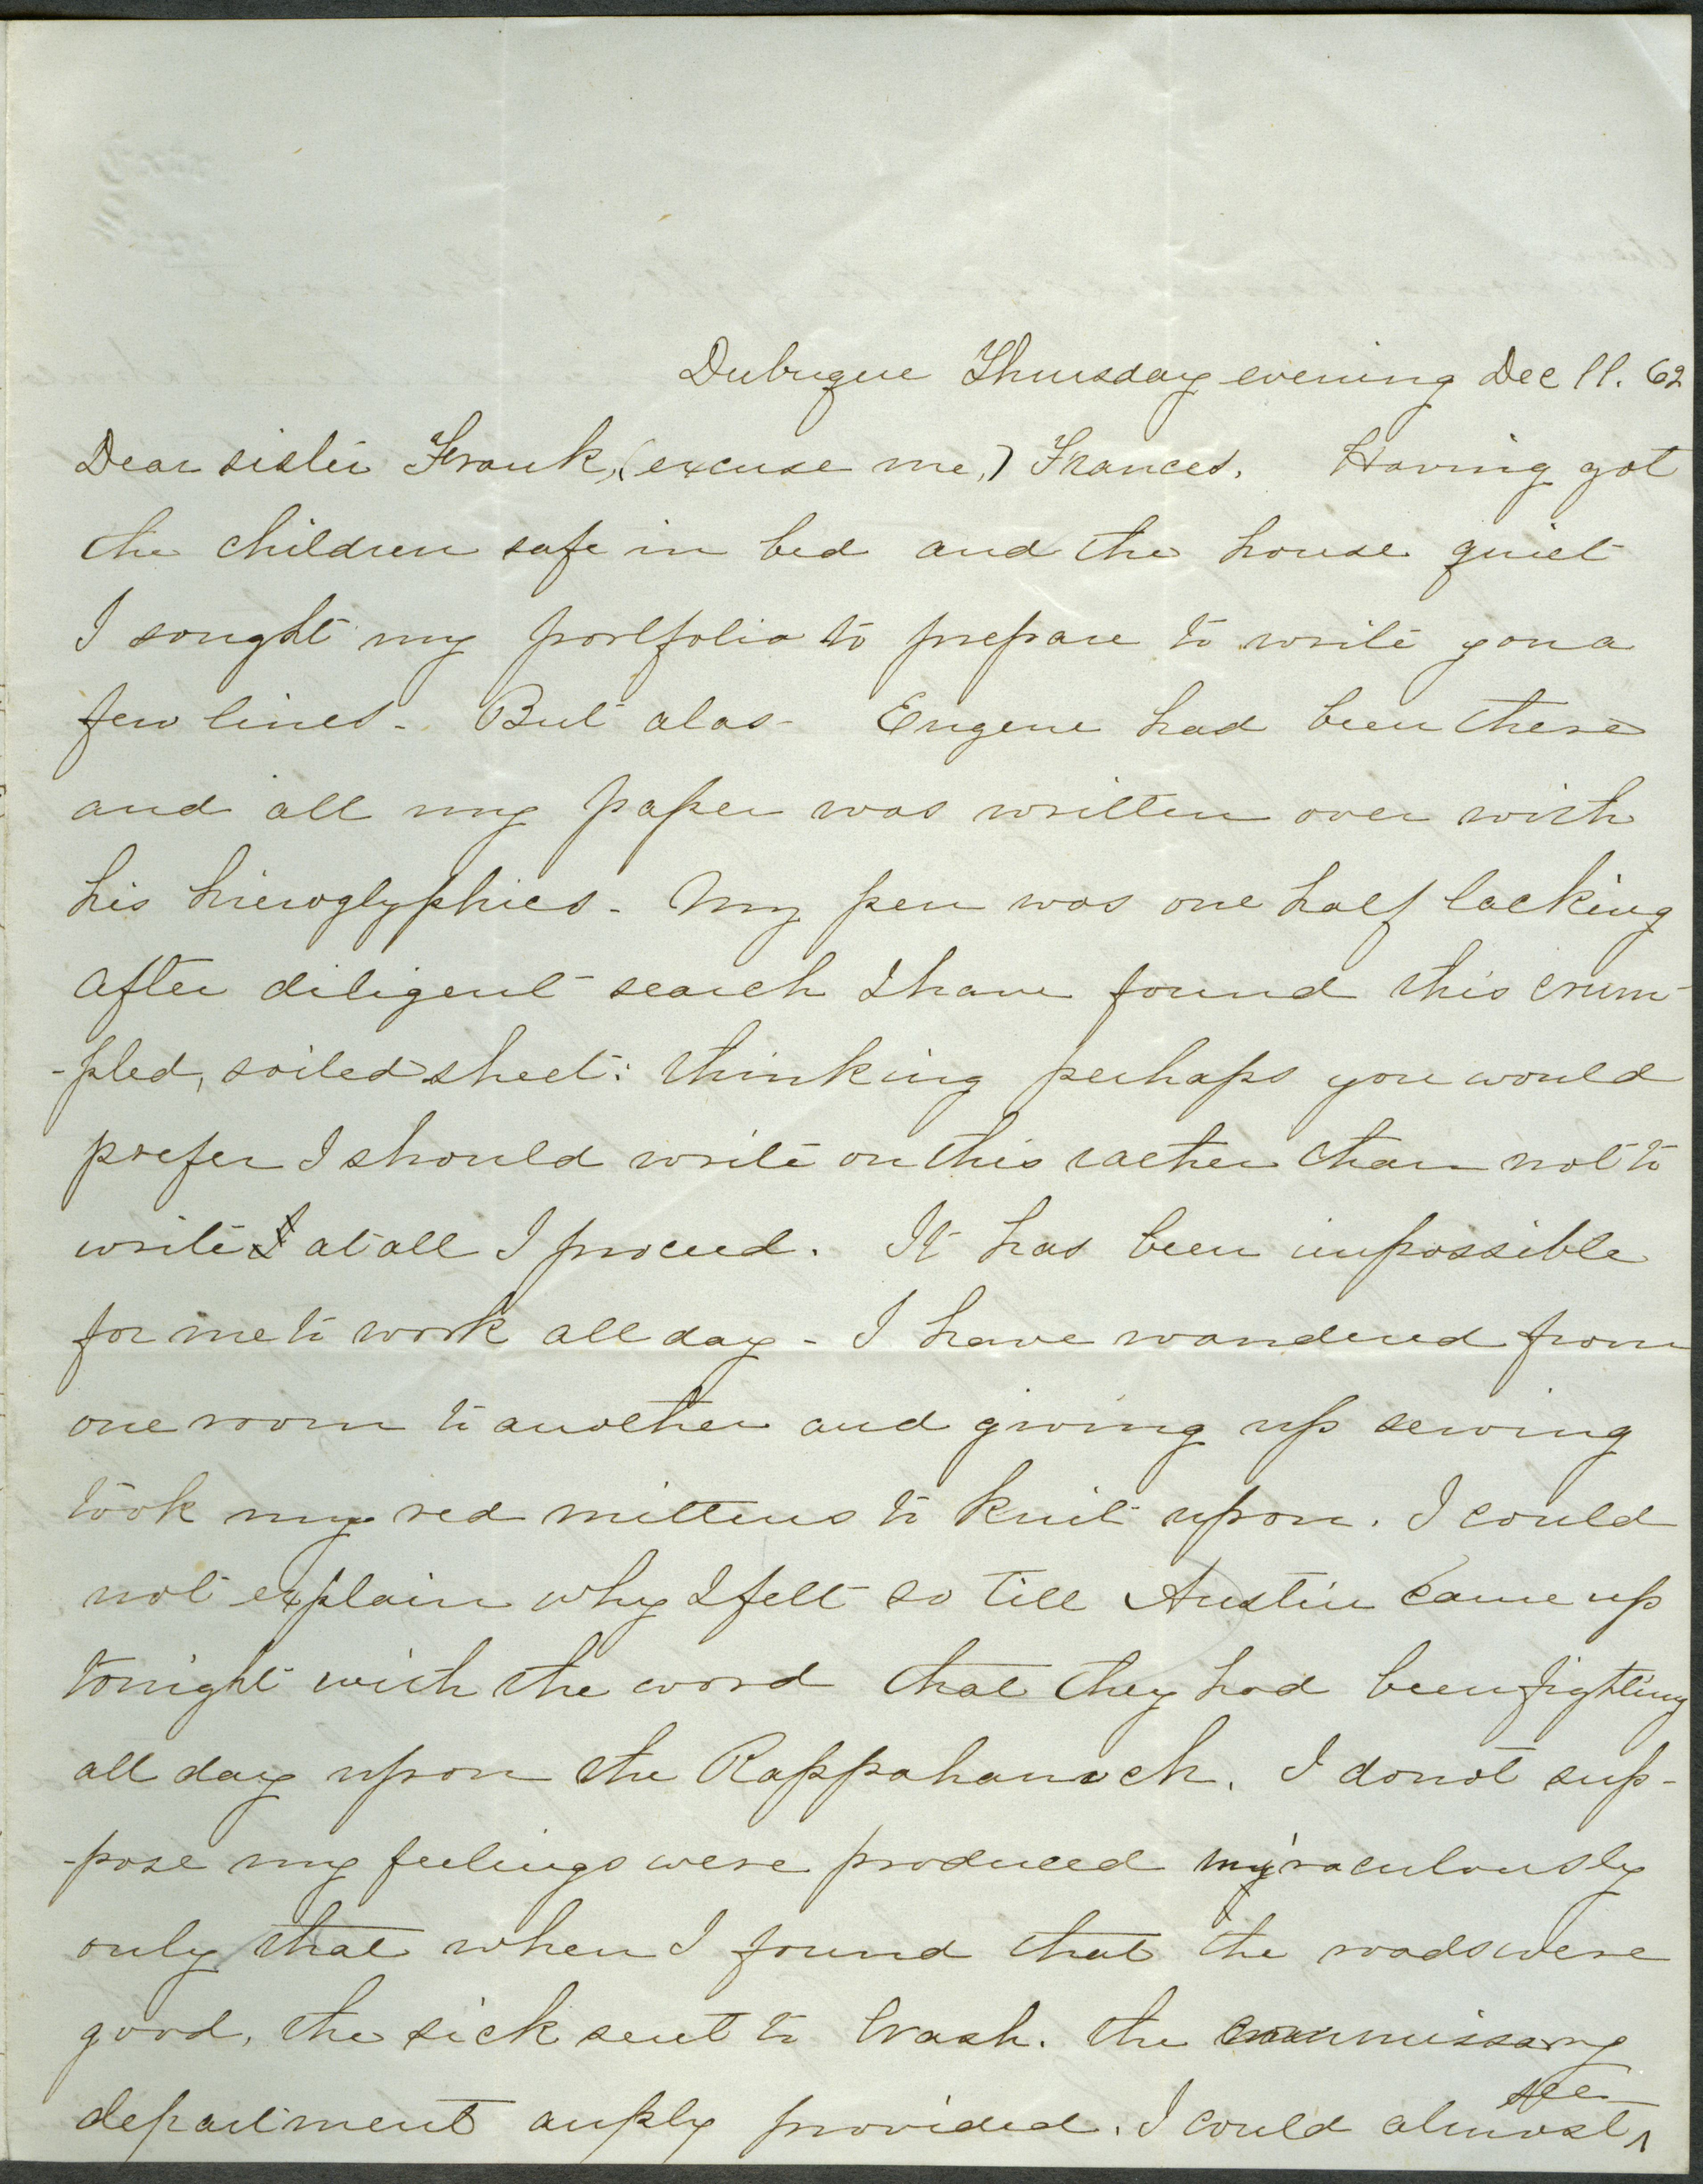 Dubuque Thursday evening Dec 11. 62
Dear sister Frank, (excuse me,) Frances. Having got
the children safe in bed and the house quiet
I sought my portfolio to prepare to write you a
few lines - But alas - Eugene had been there
and all my paper was written over with
his hieroglyphics - My pen was one half lacking
after diligent search I have found this crum-
-pled, soiled sheet: thinking perhaps you would
prefer I should write on this rather than not to
write I at all I proceed. It has been impossible
for me to work all day - I have wandered from
one room to another and giving up sewing
took my red mittens to knit upon. I could
not explain why I felt so till Austin came up
tonight with the word that they had been fighting
all day upon the Rappahanock. I do not sup-
-pose my feelings were produced miraculously
only that when I found that the roads were
good, the sick sent to Wash. the commissary
department amply provided. I could almost ^ see